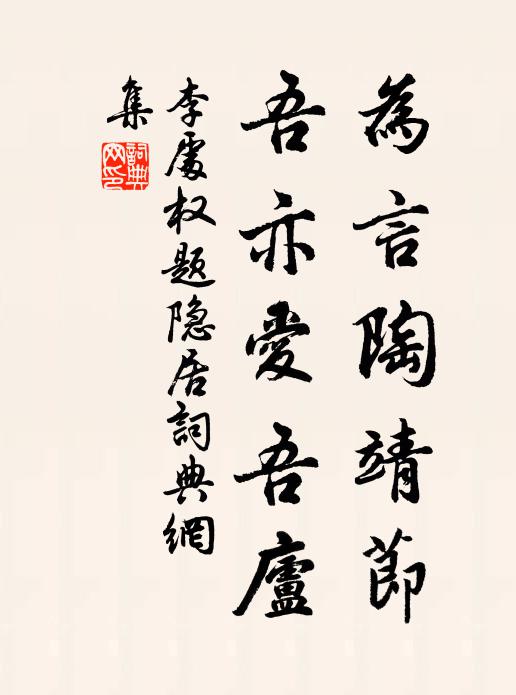 為言陶靖節
吾亦愛吾廬
李處权題隐居詞典網
集
詞典網印